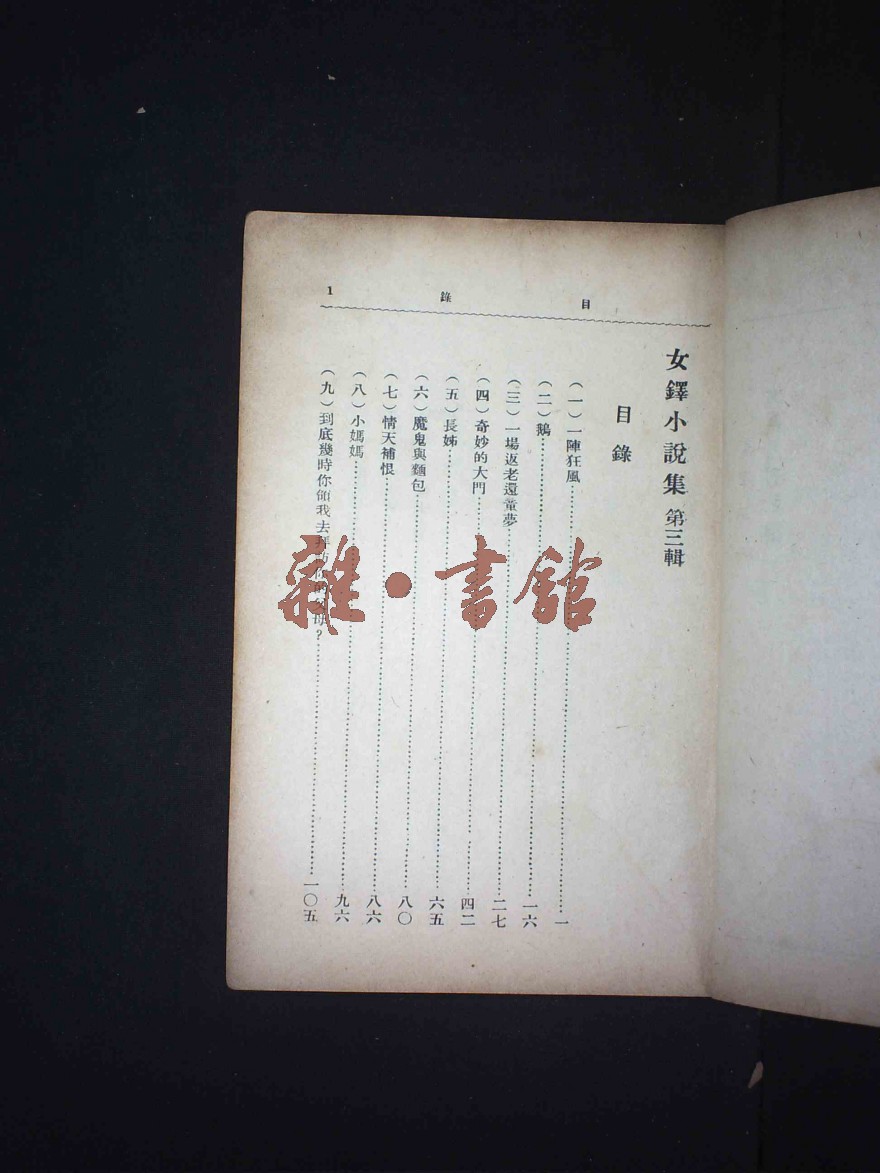 目錄 1
女鐸小說集 第三輯
目錄
(一)一陣狂風……一
(二)鵝……一六
(三)一場返老還童夢……二七
(四)奇妙的大門……四二
(五)長姊……六五
(六)魔鬼與麵包……八〇
(七)情天補恨……八六
(八)小媽媽……九六
(九)到底幾時你領我去拜訪你的父母?……一〇五
雜·書館